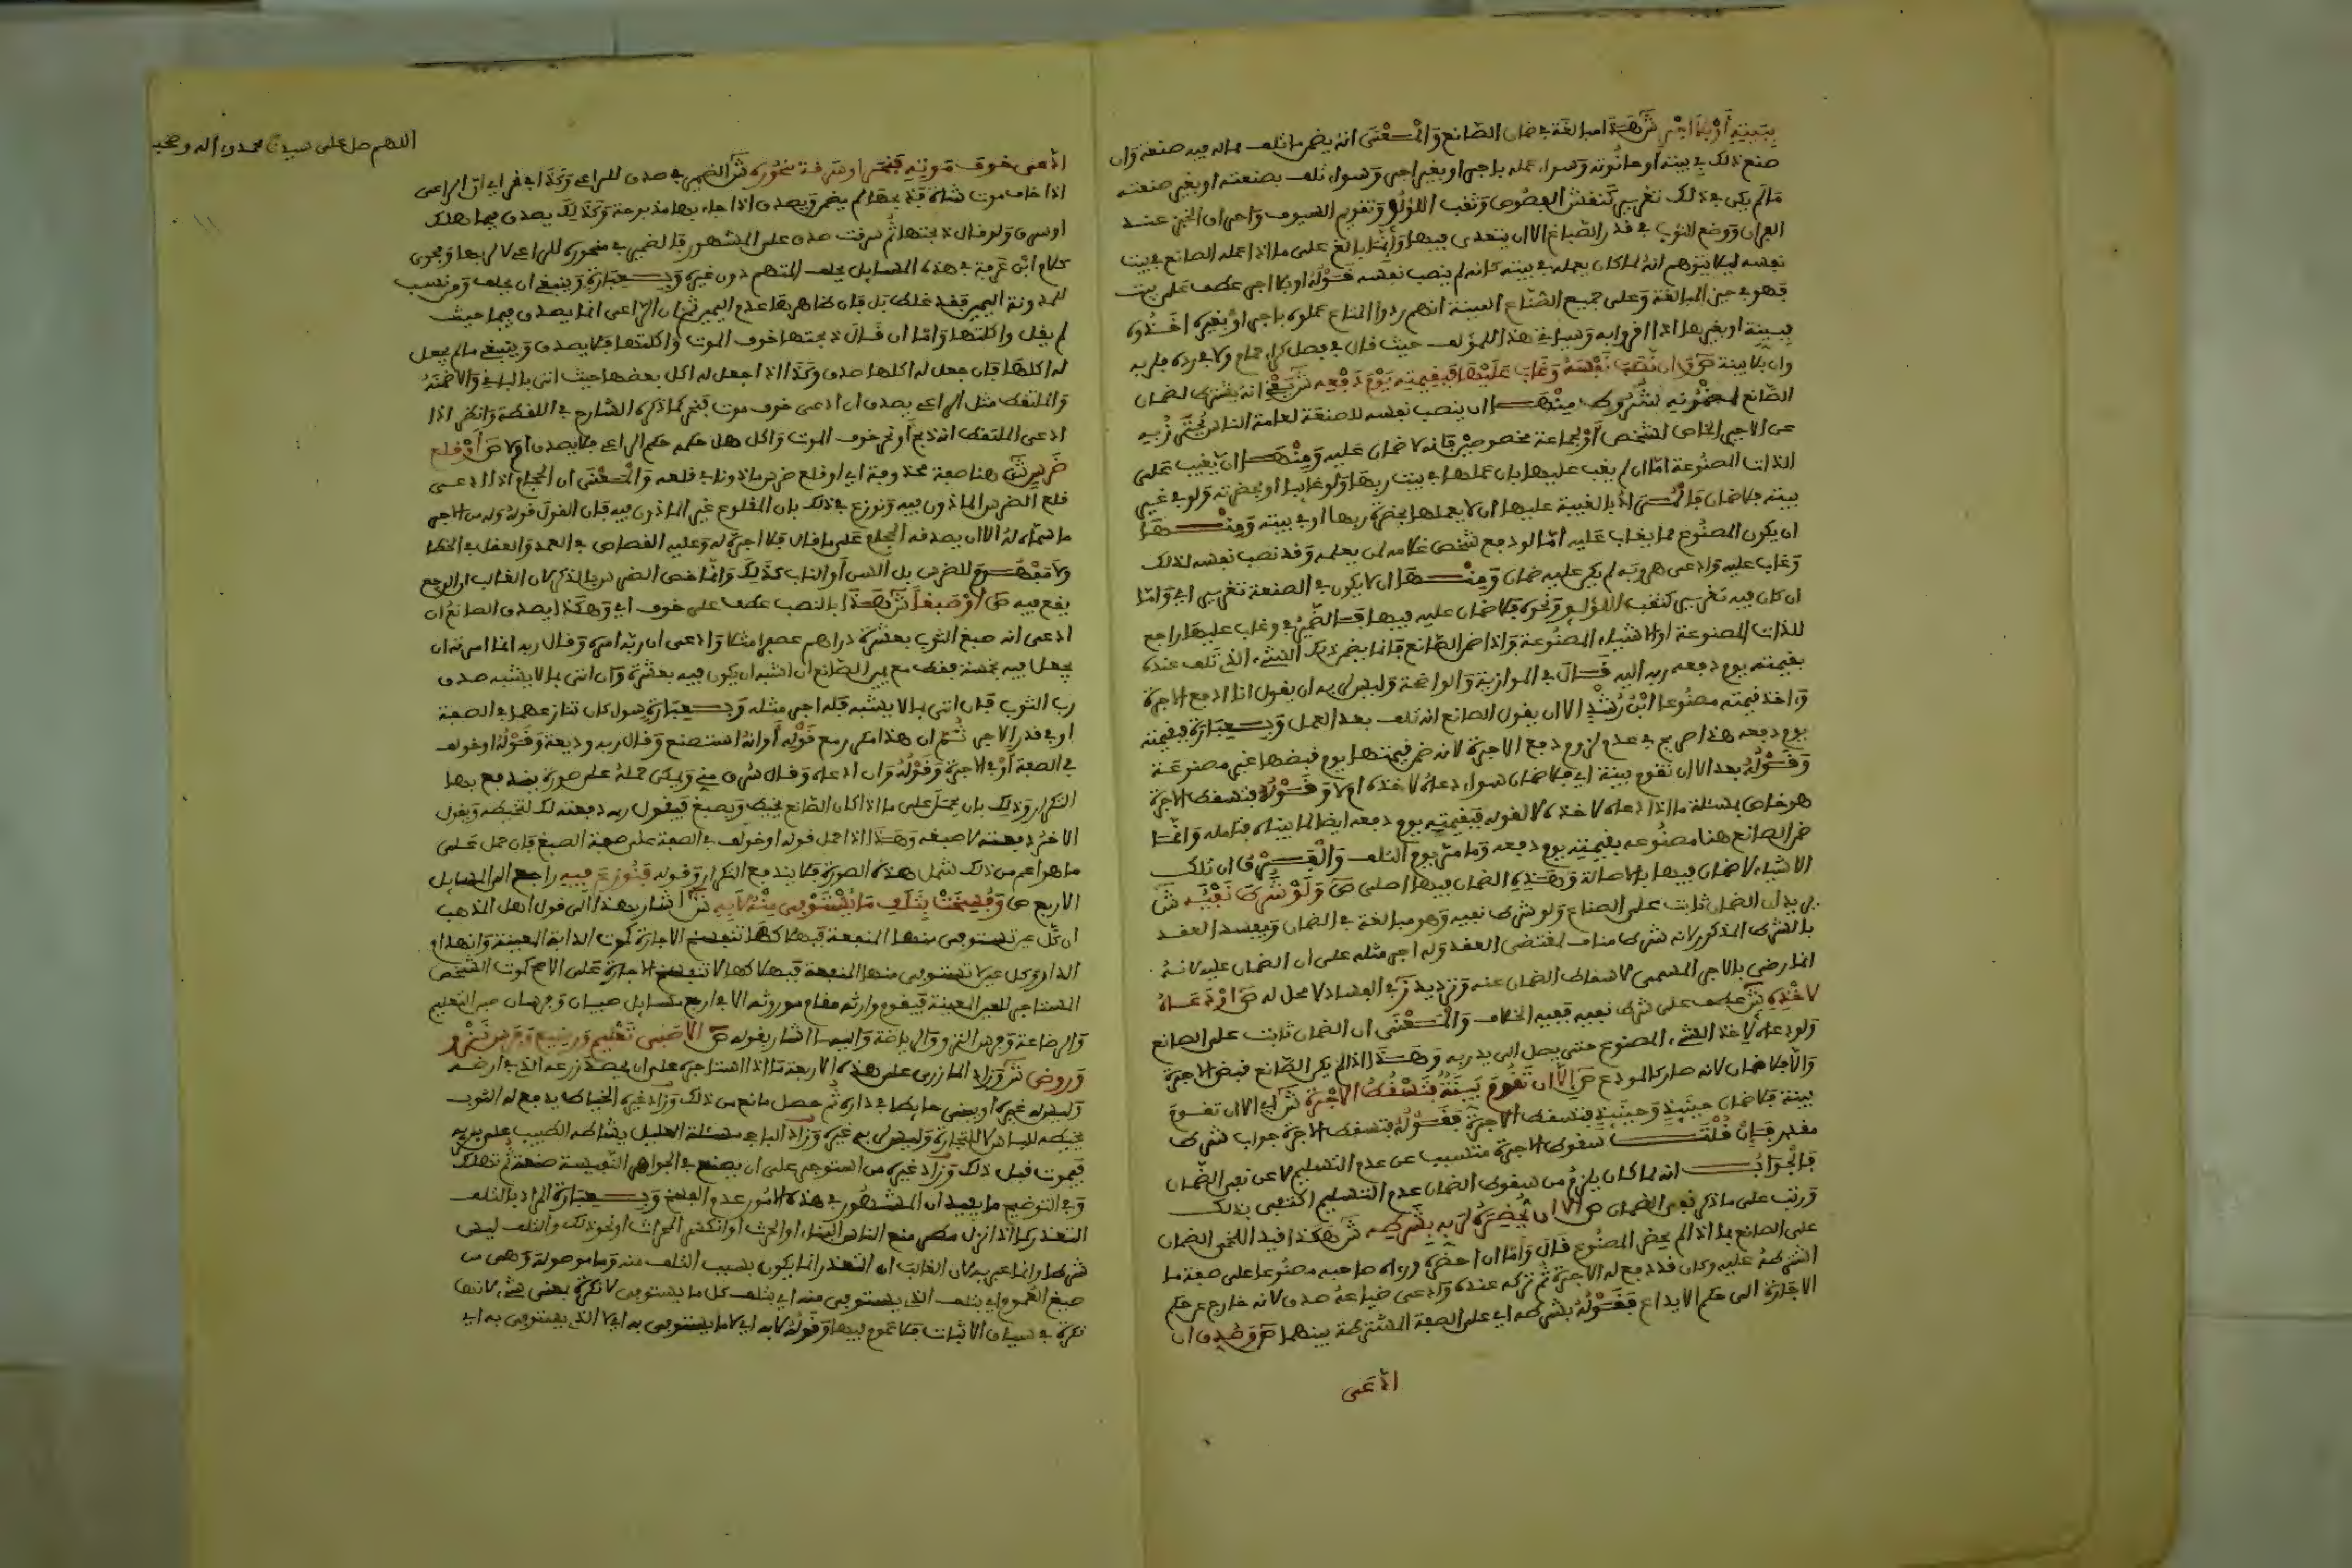 ببيته أو بلا أجر ش هذا مبالغة في ضمان الصانع والمعنى أنه يضمن ما تلف مما له فيه صنعة وإن
صنع ذلك في بيته أو حانوته وسواء عمله بأجر أو بغير أجر وسواء تلف بصنعته أو بغير صنعته
ما لم يكن في ذلك تغرير كنقش الفصوص وثقب اللؤلؤ وتقويم السيوف واحراق الخبز عند
الفران ووضع الثوب في قدر الصباغ الا ان يتعدى فيها وإنما بالغ على ما اذا عمله الصانع في بيت
نفسه ليلا يتوهم أنه لما كان يعمله في بيته كأنه لم ينصب نفسه فقوله او بلا اجر عطف على بيت
فهو في حيز المبالغة وعلى جميع الصناع البينة انهم ردوا المتاع عملوه باجر أو بغيره اخذوه
ببينة او بغيرها اذا اقروا به وسيأتي هذا للمؤلف حيث قال في فصل كراء حمام ولا في رده فلربه
وان بلا بينة ص ان نصب نفسه وغاب عليها فبقيمته يوم دفعه ش يعني انه يشترط لضمان
الصانع لمصنوعه شروط منها ان ينصب نفسه للصنعة لعامة الناس
عن الاجير الخاص لشخص أو لجماعة مخصوصين فإنه لا ضمان عليه ومنها أن يغيب على
الذات المصنوعة اما ان لم يغب عليها بان عملها في بيت ربها ولو غايبا او بحضرته ولو في غير
بيته فلا ضمان فالمراد بالغيبة عليها ان لا يعملها بحضرة ربها او في بيته ومنها
ان يكون المصنوع مما يغاب عليه اما لو دفع شخص غلامه لمن يعلمه وقد نصب نفسه لذلك
وغاب عليه وادعى هروبه لم يكن عليه ضمان ومنها ان لا يكون في الصنعة تغرير اي واما
ان كان فيه تغرير كثقب اللؤلؤ ونحوه فلا ضمان عليه فيها فالضمير في وغاب عليها راجع
للذات المصنوعة او الاشياء المصنوعة واذا ضمن الصانع فانما يضمن ذلك الشيء الذي تلف عنده
بقيمته يوم دفعه ربه اليه قال في الموازية والواضحة وليس لربه ان يقول انا ادفع الاجرة
واخذ قيمته مصنوعا ابن رشد الا ان يقول الصانع انه تلف بعد العمل وبعبارة فبقيمته
يوم دفعه هذا صريح في عدم لزوم دفع الاجرة لانه ضمن قيمتها يوم قبضها غير مصنوعة
وقوله بعد الا ان تقوم بينة اي فلا ضمان سواء دعاه لاخذه ام لا وقوله فتسقط الاجرة
هو خاص بمسئلة ما اذا دعاه لاخذه لا لقوله فبقيمته يوم دفعه ايضا لما بيناه فتامله وانما
ضمن الصانع هنا مصنوعه بقيمته يوم دفعه وما مر يوم التلف والفرق ان تلك
الاشياء لا ضمان فيها بالاصالة وهذه الضمان فيها اصلي ص ولو شرط نفيه ش
يريد ان الضمان ثابت على الصانع ولو شرط نفيه وهو مبالغة في الضمان ويفسد العقد
بالشرط المذكور لانه شرط مناف لمقتضى العقد وله اجر مثله على ان الضمان عليه لانه
انما رضي بالاجر المسمى لاسقاط الضمان عنه وترديد ز في الفساد لا محل له ص او دعاه
لاخذه ش عطف على شرط نفيه ففيه الخلاف والمعنى ان الضمان ثابت على الصانع
ولو دعاه لاخذ الشيء المصنوع حتى يصل الى يد ربه وهذا اذا لم يكن الصانع قبض الاجرة
والا فلا ضمان لانه صار كالمودع ص الا ان تقوم بينة فتسقط الاجرة ش اي الا ان تقوم
بينة فلا ضمان حينئذ وحينئذ فتسقط الاجرة فقوله فتسقط الاجرة جواب شرط
مقدر فإن قلت سقوط الاجرة متسبب عن عدم التسليم لا عن نفي الضمان
فالجواب انه لما كان يلزم من سقوط الضمان عدم التسليم اكتفى بذلك
ورتب على ما ذكر نفي الضمان ص الا ان يحضره لربه بشرطه ش هكذا قيد اللخمي الضمان
على الصانع بما اذا لم يحضر المصنوع قال واما ان احضره ورءاه صاحبه مصنوعا على صفة ما
الشرطه عليه وكان قد دفع له الاجرة ثم تركه عنده وادعى ضياعه صدق لانه خارج عن حكم
الاجارة الى حكم الايداع فقوله بشرطه اي على الصفة المشترطة بينهما ص وصدق ان
ادعى
اللهم صل على سيدنا محمد وءاله وصحبه
ادعى خوف موت فنحر او سرقة منحوره ش الضمير في صدق للراعي وكذا في فنحر اي ان الراعي
اذا خاف موت شاة فذبحها لم يضمن ويصدق اذا جاء بها مذبوحة وكذلك يصدق فيما هلك
او سرق ولو قال ذبحتها ثم سرقت صدق على المشهور فالضمير في منحوره للراعي لا لربها ونحوى
كلام ابن عرفة في هذه المسايل يحلف المتهم دون غيره وبعبارة وينبغي ان يحلف ومن نسب
للمدونة اليمين فقد غلط بل قال ظاهرها عدم اليمين ثم ان الراعي انما يصدق فيما حيث
لم يقل واكلتها واما ان قال ذبحتها خوف الموت واكلتها فلا يصدق وينبغي ما لم يجعل
له اكلها فان جعل له اكلها صدق وكذا اذا جعل له اكل بعضها حيث اتى بالباقي والا ضمنه
والملتقط مثل الراعي يصدق ان ادعى خوف موت فنحر كما ذكره الشارح في اللقطة وانظر اذا
ادعى الملتقط انه ذبح أو نحر خوف الموت واكل هل حكمه حكم الراعي فلا يصدق ام لا ص أو قلع
ضرس ش هنا صفة محذوفة اي او قلع ضرس ماذونا في قلعه والمعنى ان الحجام اذا ادعى
قلع الضرس الماذون فيه ونوزع في ذلك بان المقلوع غير الماذون فيه فان القول قوله وله من الاجر
ما سماه له الا ان يصدقه الحجام على ما قال فلا اجرة له وعليه القصاص في العمد والعقل في الخطا
ولا مفهوم للضرس بل السن أو الناب كذلك وانما خص الضرس بالذكر لان الغالب ان الوجع
يقع فيه ص او صبغا ش هذا بالنصب عطف على خوف اي وهكذا يصدق الصانع ان
ادعى انه صبغ الثوب بعشرة دراهم عصفرا مثلا وادعى ان ربه امره وقال ربه انما امرته ان
يجعل فيه بخمسة فقط مع يمين الصانع ان اشبه ان يكون فيه بعشرة وان اتى بما لا يشبه صدق
رب الثوب فان اتى بما لا يشبه فله اجر مثله وبعبارة سواء كان تنازعهما في الصفة
او في قدر الاجر ثم ان هذا مكرر مع قوله أو انه استصنع وقال ربه وديعة وقوله او خولف
في الصفة أو في الاجرة وقوله وان ادعاه وقال سرق مني ويمكن حمله على صورة يندفع بها
التكرار وذلك بان يحمل على ما اذا كان الصانع يخيط ويصبغ فيقول ربه دفعته لك لتخيطه ويقول
الاخر دفعته لاصبغه وهذا اذا حمل قوله او خولف في الصفة على صفة الصبغ فان حمل على
ما هو اعم من ذلك شمل هذه الصورة فلا يندفع التكرار وقوله فنوزع فيه راجع الى المسايل
الاربع ص وفسخت بتلف ما يستوفى منه لا به ش اشار بهذا الى قول اهل المذهب
ان كل عين تستوفى منها المنفعة فبهلاكها تنفسخ الاجارة كموت الدابة المعينة وانهدام
الدار وكل عين لا تستوفى منها المنفعة فبهلاكها لا تنفسخ الاجارة على الاصح كموت الشخص
المستاجر للعين المعينة فيقوم وارثه مقام موروثه الا في اربع مسايل صبيان وفرسان صبي التعليم
والرضاعة وفرس النزو والرياضة واليها اشار بقوله ص الا صبي تعليم ورضيع وفرس نزو
وروض ش وزاد المازري على هذه الاربعة ما اذا استاجره على ان يحصد زرعه الذي في ارضه
وليس له غيره او يبني حايطا في داره ثم حصل مانع من ذلك وزاد غيره الخياط يدفع له الثوب
يخيطه للباس لا للتجارة وليس لربه غيره وزاد الباجي مسئلة العليل يشارطه الطبيب على بريه
فيموت قبل ذلك وزاد غيره من استوجر على ان يصنع في الجواهر النفيسة صنعة ثم تهلك
وفي التوضيح ما يفيد ان المشهور في هذه الامور عدم الفسخ وبعبارة المراد بالتلف
التعذر كما اذا نزل مطر منع الناس البناء او الحرث او انكسر المحراث او نحو ذلك والتلف ليس
شرطا وانما عبر به لان الغالب ان التعذر انما يكون بسبب التلف منه وما موصولة وهي من
صيغ العموم اي بتلف الذي يستوفى منه اي بتلف كل ما يستوفى لا نكرة بمعنى شيء لانها
نكرة في سياق الاثبات فلا عموم فيها وقوله لا به اي لا ما يستوفى به اي لا الذي يستوفى به اي